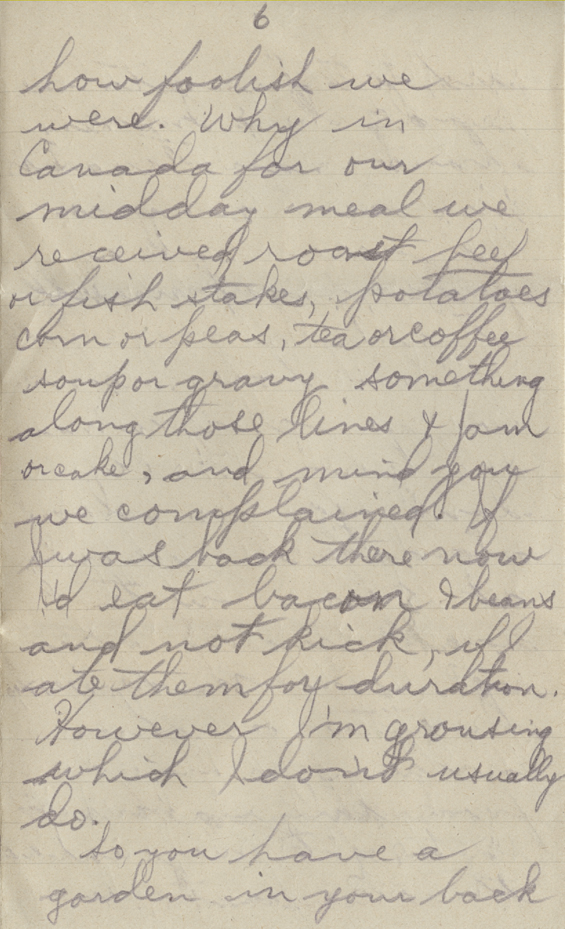 6
how foolish we
were. Why in
Canada for our
midday meal we
received roast beef
or fish stakes, potatoes
corn or peas, tea or coffee
soup or gravy something
along those lines & jam
or cake, and mind you
we complained. If
I was back there now
I'd eat bacon & beans
and not kick, if I
ate them for duration.
However I'm grousing
which I don't usually
do.
So you have a
garden in your back